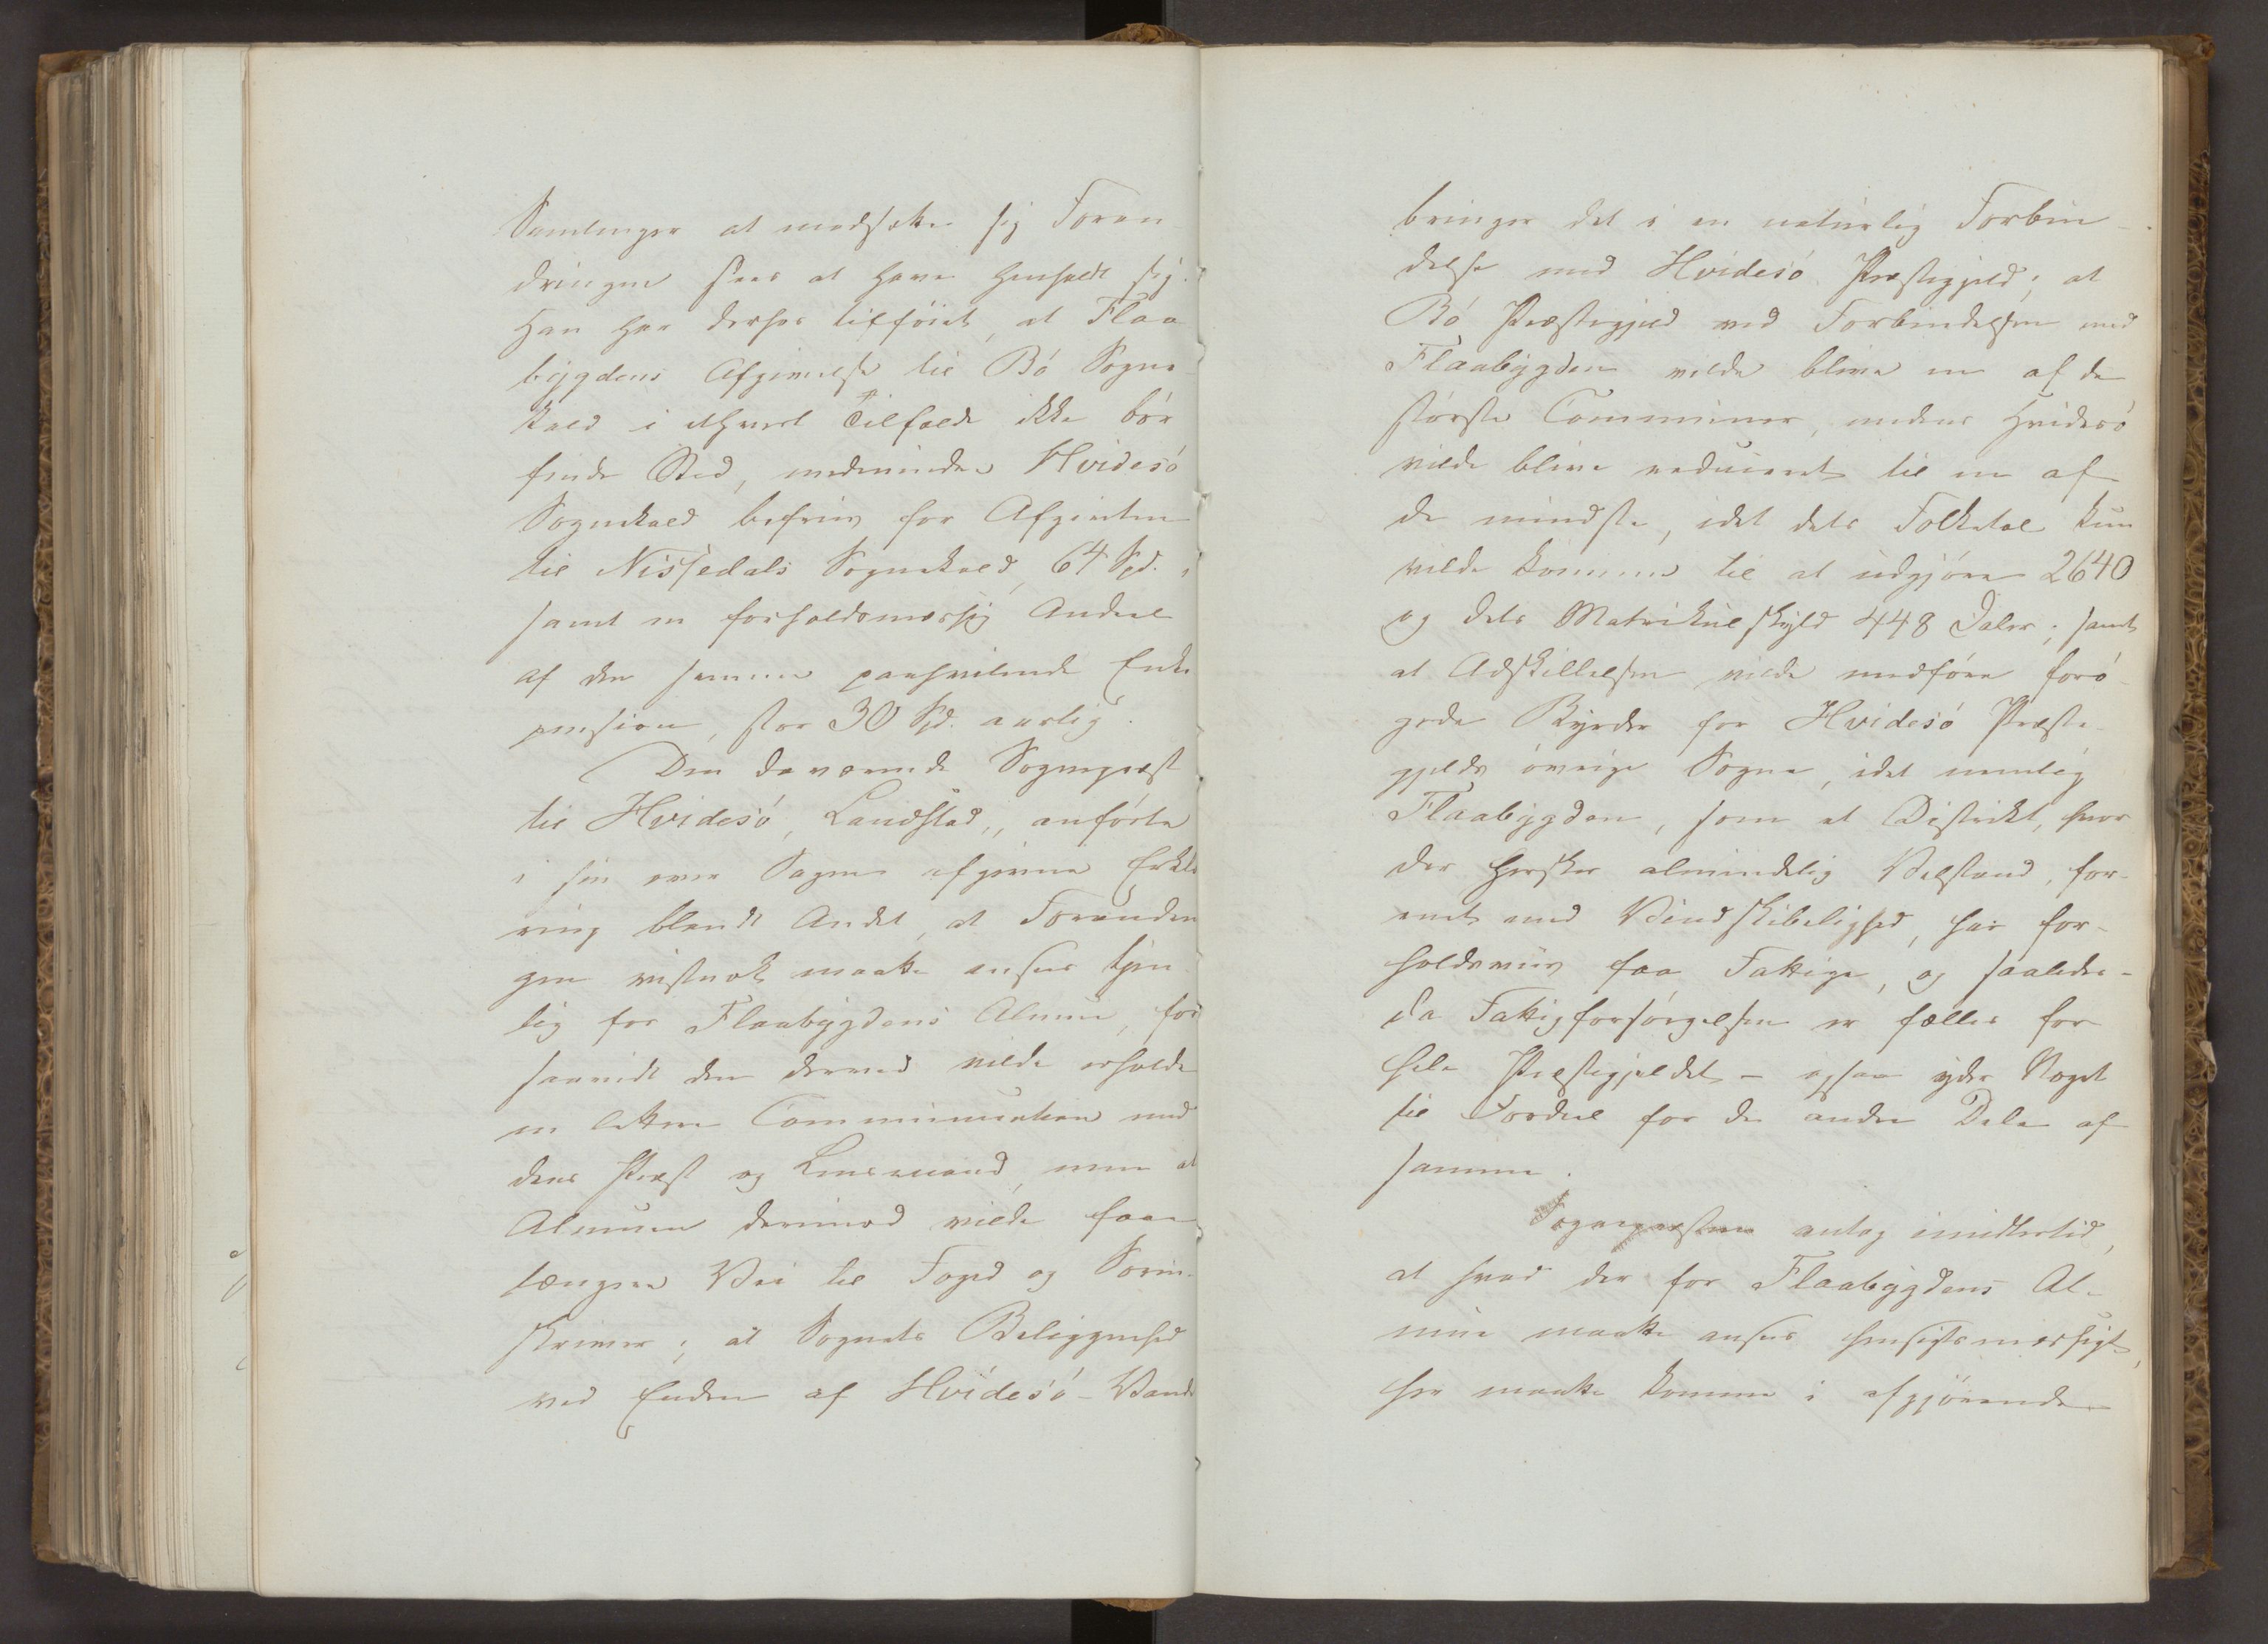 Samlinger at modsætte sig Foran
dringen sees at have henholdt sig.
Han har derhos tilföiet, at Flaa
bygdens Afgivelse til Bö Sogne-
kald i ethvert Tilfælde ikke bör
finde Sted, medmindre Hvidesö
Sognekald befries for Afgivten
til Nissedals Sognekald, 64 Spd.,
samt en forholdsmæssig Andeel
af den samme paahvilende Enke
pension, stor 30 Spd. aarlig.
Den daværende Sognepræst
til Hvidesö, Landstad, anförte
i sin over Sagen afgivne Erklæ
ring blandt Andet, at Forandrin
gen vistnok maatte ansees tjen
lig for Flaabygdens Almue, for
saavidt den derved vilde erholde
en lettere Communication med
dens Præst og Lensmand, men at
Almuen derimod vilde faae
længere Vei til Foged og Soren-
skriver; at Sognets Beliggenhed
ved Enden af Hvidesö-Vand
bringer det i en naturlig Forbin-
delse med Hvidesö Præstegjeld; at
Bö Præstegjeld ved Forbindelsen med
Flaabygden vilde blive en af de
störste Communer, medens Hvidesö
vilde blive reduceret til en af
de mindste, idet dets Folketal kun
vilde komme til at udgjöre 2640
og dets Matrikulskyld 448 Daler; samt
at Adskillelsen vilde medföre forö-
gede Byrder for Hvidesö Præste-
gjelds övrige Sogne, idet nemlig
Flaabygden, som et Distrikt, hvor
der hersker almindelig Velstand, for-
enet med Vindskibelighed, har for-
holdsviis faa Fattige, og saaledes -
da Fattigforsörgelsen er fælles for
hele Præstegjeldet - ogsaa yder Noget
til Fordeel for de andre Dele af
samme.
Sognepræsten antog imidlertid,
at hvad der for Flaabygdens Al-
mue maatte ansees hensigtsmæssigt,
her maatte komme i afgjörende